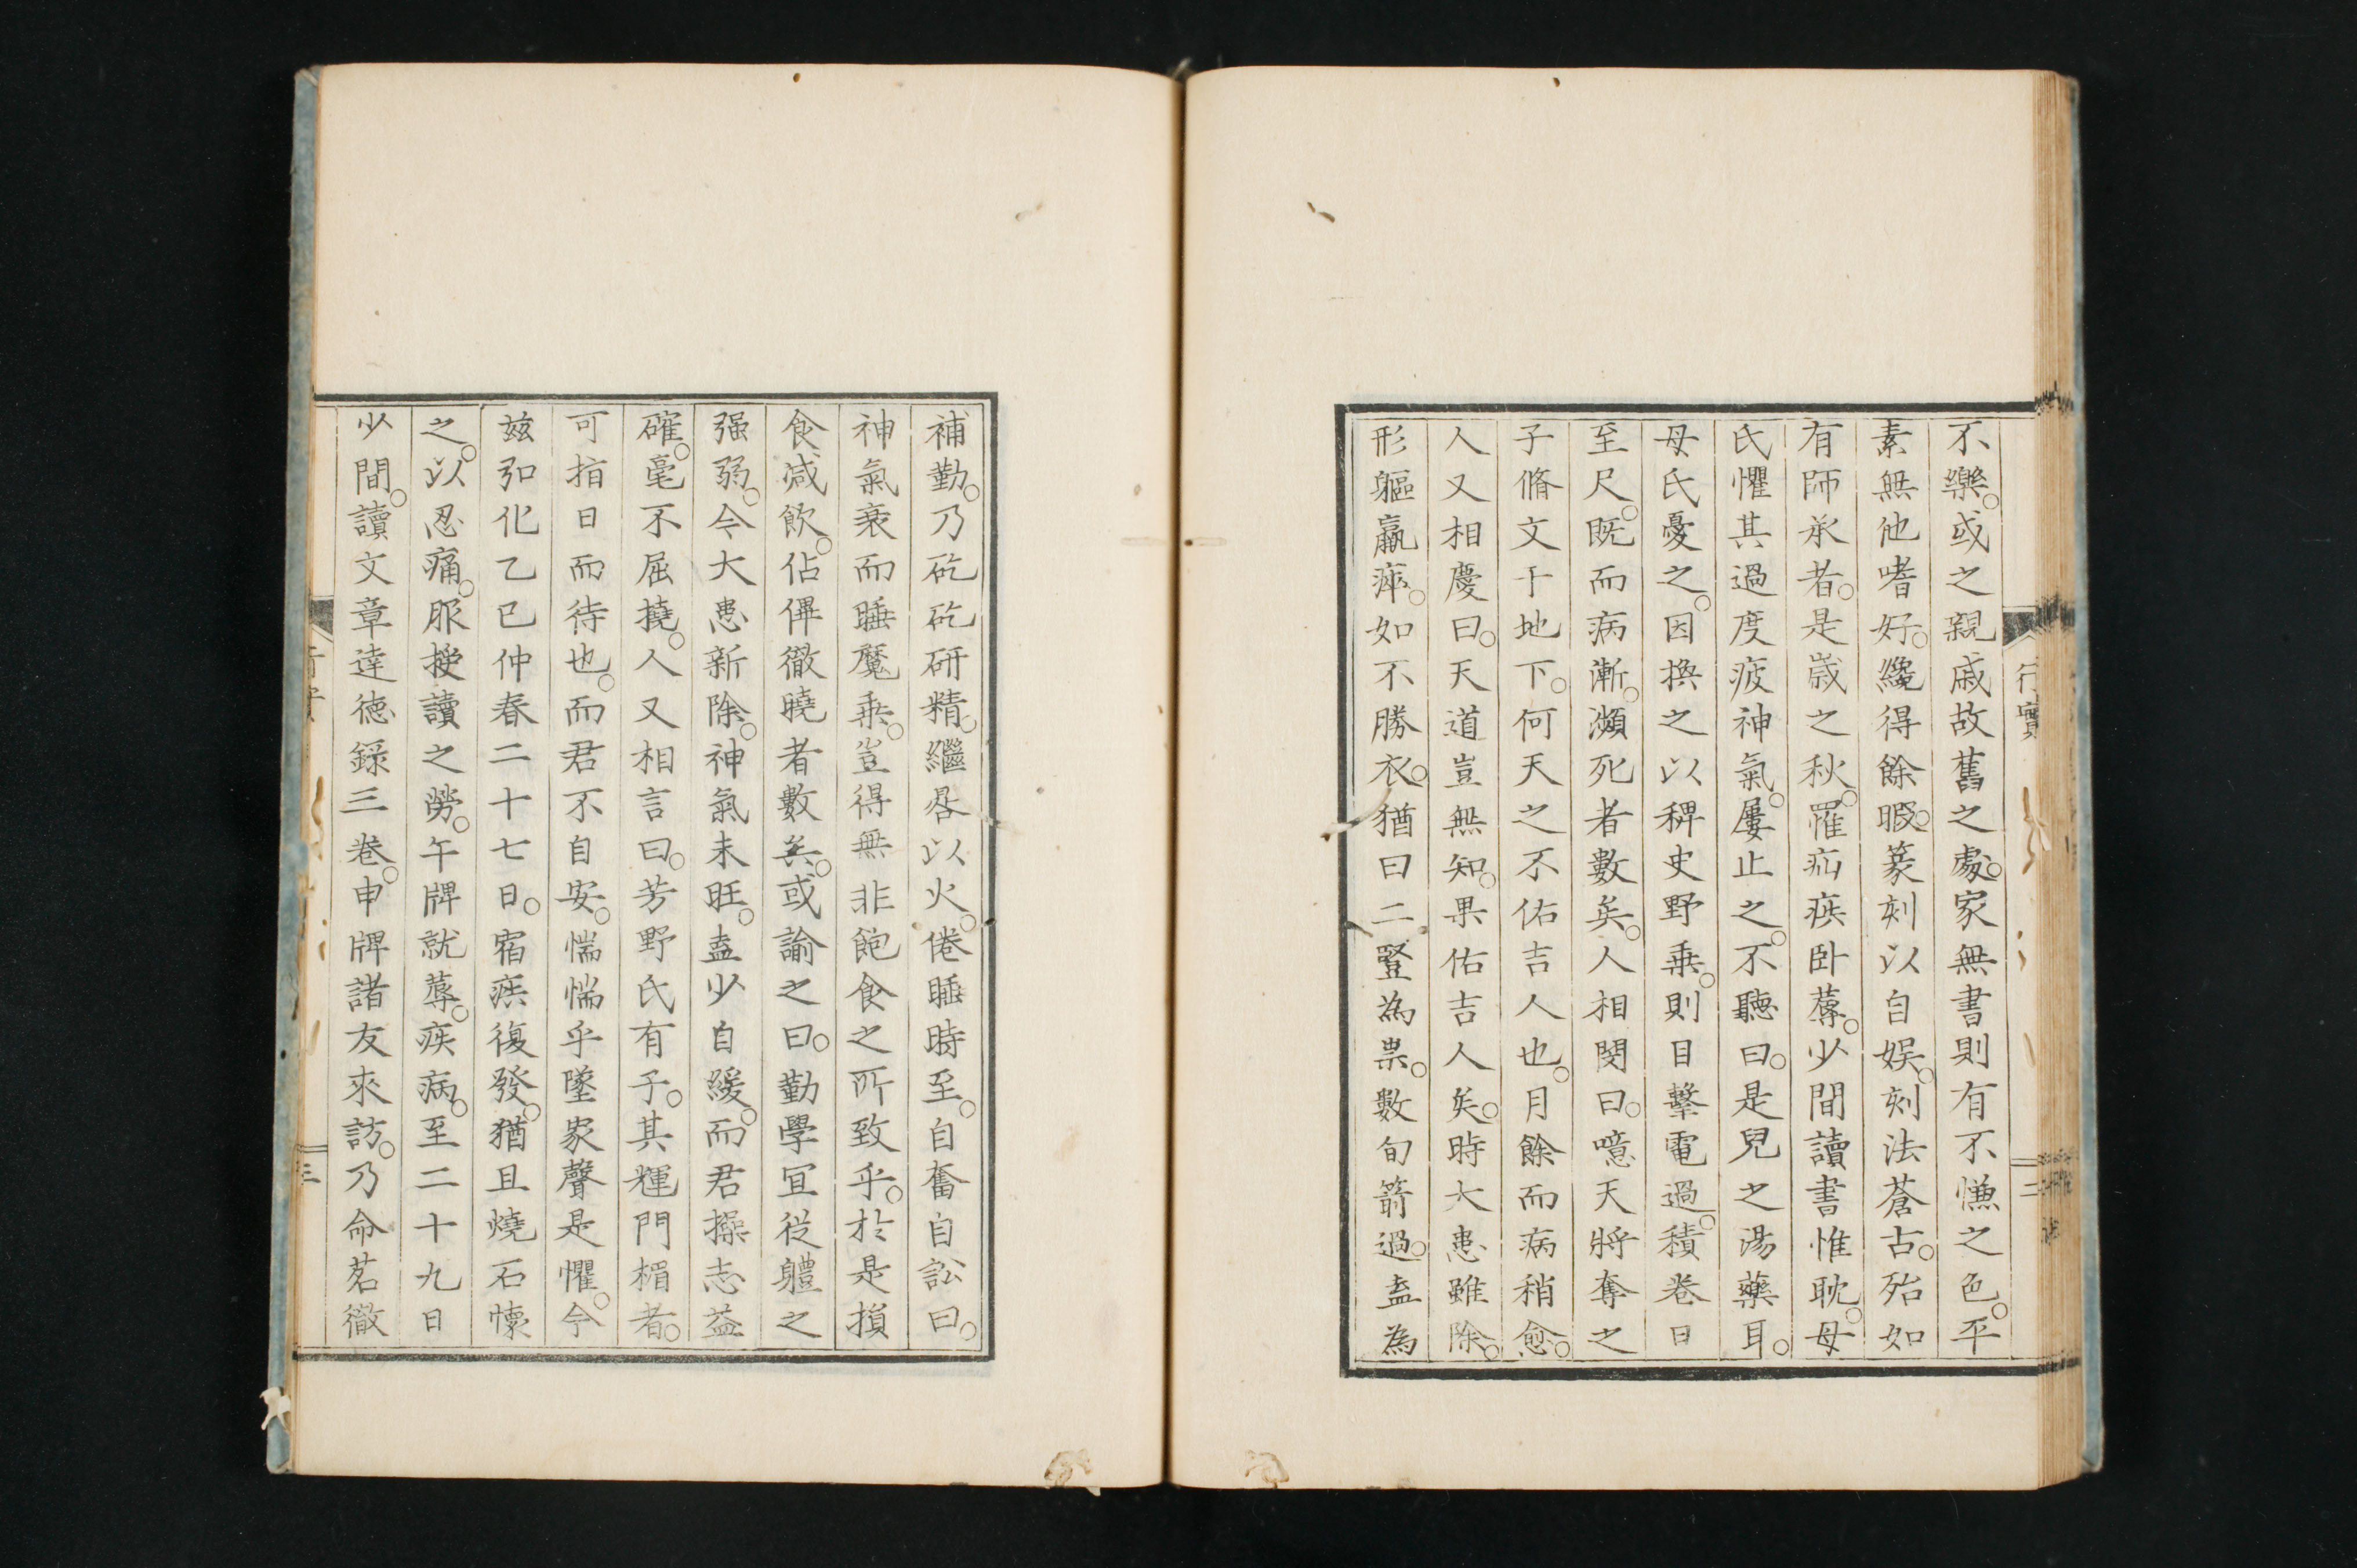 不樂。或之親戚故舊之處。家無書則有不慊之色。平
素無他嗜好。纔得餘暇。篆刻以自娯。刻法蒼古。殆如
有師承者。是歳之秋。罹疝疾臥蓐。少間讀書惟耽。母
氏懼其過度疲神氣。屢止之。不聽曰。是兒之湯藥耳。
母氏憂之。因換之以稗史野乗。則目擊電過。積巻日
至尺。既而病漸。瀕死者數矣。人相閔曰。噫天將奪之
子脩文于地下。何天之不佑吉人也。月餘而病稍愈。
人又相慶曰。天道豈無知。果佑吉人矣。時大患雖除。
形軀羸瘁。如不勝衣。猶曰二豎為祟。數旬箭過。盍為
行實
二
補勤。乃矻矻研精。繼晷以火。倦睡時至。自奮自訟曰。
神氣衰而睡魔乗。豈得無非飽食之所致乎。於是損
食減飲。佔僤徹曉者數矣。或諭之曰。勤學宜從軆之
强弱。今大患新除。神氣未旺。盍少自緩。而君操志益
確。毫不屈撓。人又相言曰。芳野氏有子。其輝門楣者。
可指日而待也。而君不自安。惴惴乎墜家聲是懼。今
玆弘化乙巳仲春二十七日。宿疾復發。猶且燒石懷
之。以忍痛。服挼讀之勞。午牌就蓐。疾病。至二十九日
少間。讀文章達德錄三巻。申牌諸友來訪。乃命茗徹
三